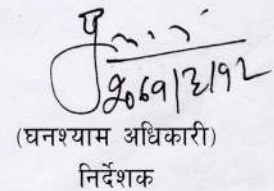 २०६९/३/१२
(घनश्याम अधिकारी)
निर्देशक